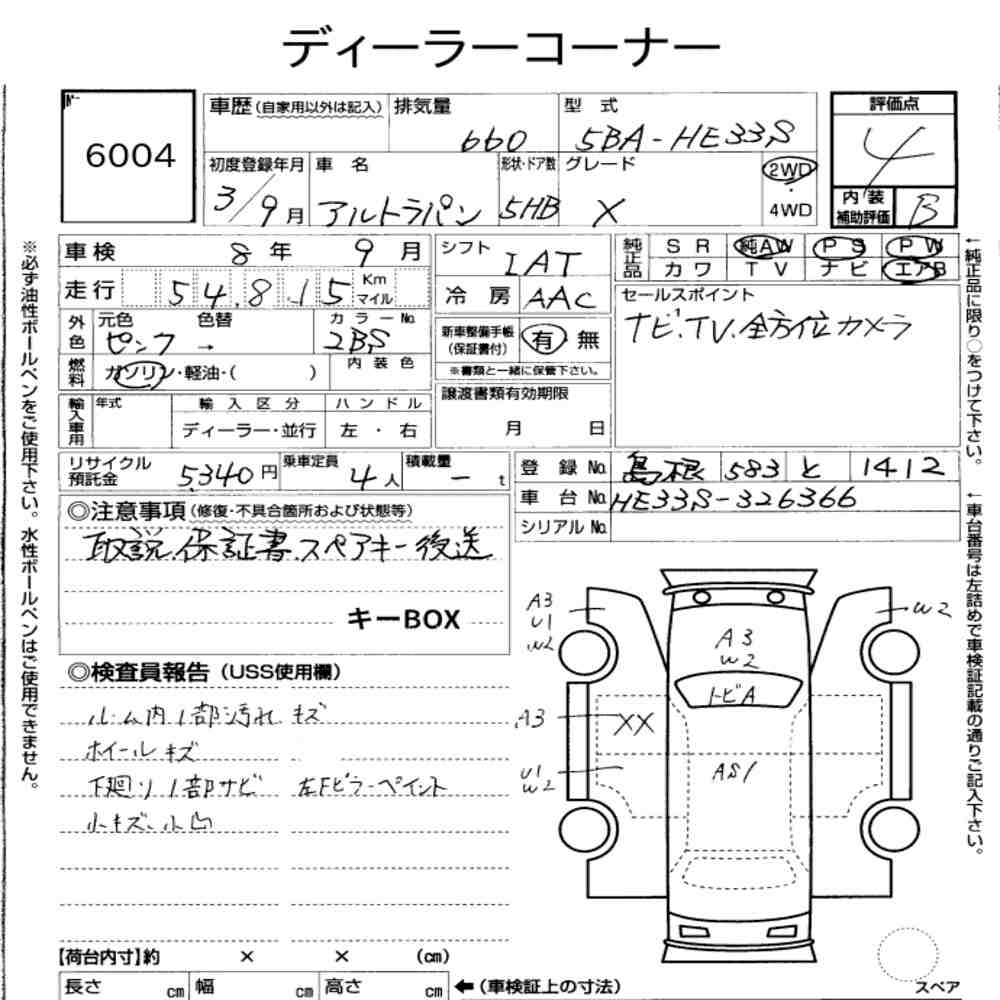 ディーラーコーナー
№
6004
車歴(自家用以外は記入)
排気量
660
型 式
5BA-HE33S
評価点
4
内装補助評価
B
初度登録年月
3/9月
車 名
アルトラパン
形状・ドア数
5HB
グレード
X
2WD
・
4WD
車検 8年 9月
シフト
IAT
純正品
SR 純AW PS PW
カワ TV ナビ エアB
走行 54,815 Km マイル
冷 房 AAC
セールスポイント
ナビ.TV.全方位カメラ
外色
元色 色替
ピンク →
カラーNo.
2BS
新車整備手帳
(保証書付)
有 無
※書類と一緒に保管下さい。
燃料
ガソリン・軽油・( )
内装色
譲渡書類有効期限
月 日
輸入車用
年式
輸入区分
ディーラー・並行
ハンドル
左・右
リサイクル預託金
5340円
乗車定員
4人
積載量
- t
登録No. 島根 583 と 1412
車台No. HE33S-326366
シリアルNo.
◎注意事項(修復・不具合箇所および状態等)
取説.保証書.スペアキー後送
キーBOX
◎検査員報告(USS使用欄)
ルーム内1部汚れ キズ
ホイールキズ
下廻り1部サビ 左Fピラーペイント
小キズ、小凹
A3
U1
W2
W2
A3
W2
トビA
A3
XX
U1
W2
AS1
【荷台内寸】約 × × (cm)
長さ cm 幅 cm 高さ cm
←(車検証上の寸法)
スペア
※必ず油性ボールペンをご使用下さい。水性ボールペンはご使用できません。
←純正品に限り○をつけて下さい。
←車台番号は左詰めで車検証記載の通りご記入下さい。